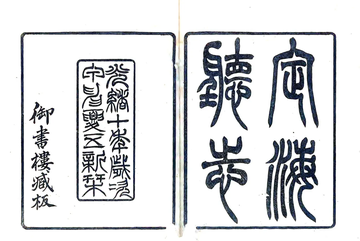 定海
聽志
光緒十年歲次
甲申夏五新栞
御書樓藏板